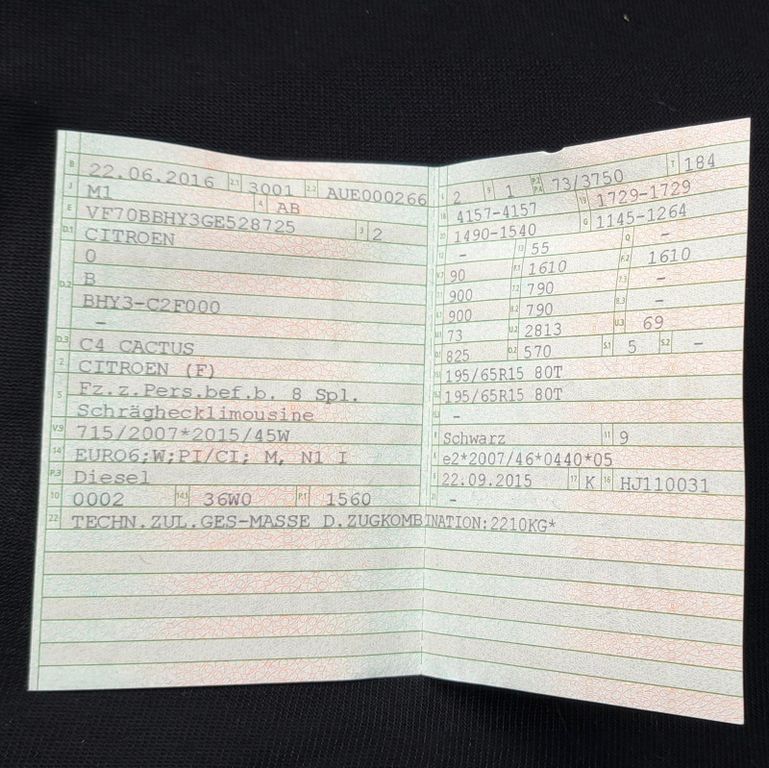 B 22.06.2016 2.1 3001 2.2 AUE000266
J M1 4 AB
E VF70BBHY3GE528725 3 2
D.1 CITROEN
0
D.2 B
BHY3-C2F000
-
D.3 C4 CACTUS
2 CITROEN (F)
5 Fz.z.Pers.bef.b. 8 Spl.
Schräghecklimousine
V.9 715/2007*2015/45W
14 EURO6;W;PI/CI; M, N1 I
P.3 Diesel
10 0002 14.1 36W0 P.1 1560
22 TECHN.ZUL.GES-MASSE D.ZUGKOMBINATION:2210KG*
L 2 9 1 P.2 P.4 73/3750 T 184
18 4157-4157 19 1729-1729
20 1490-1540 G 1145-1264
12 - 13 55 Q -
V.7 90 F.1 1610 F.2 1610
7.1 900 7.2 790 7.3 -
8.1 900 8.2 790 8.3 -
U.1 73 U.2 2813 U.3 69
O.1 825 O.2 570 S.1 5 S.2 -
15.1 195/65R15 80T
15.2 195/65R15 80T
15.3 -
R Schwarz 11 9
K e2*2007/46*0440*05
6 22.09.2015 17 K 16 HJ110031
21 -